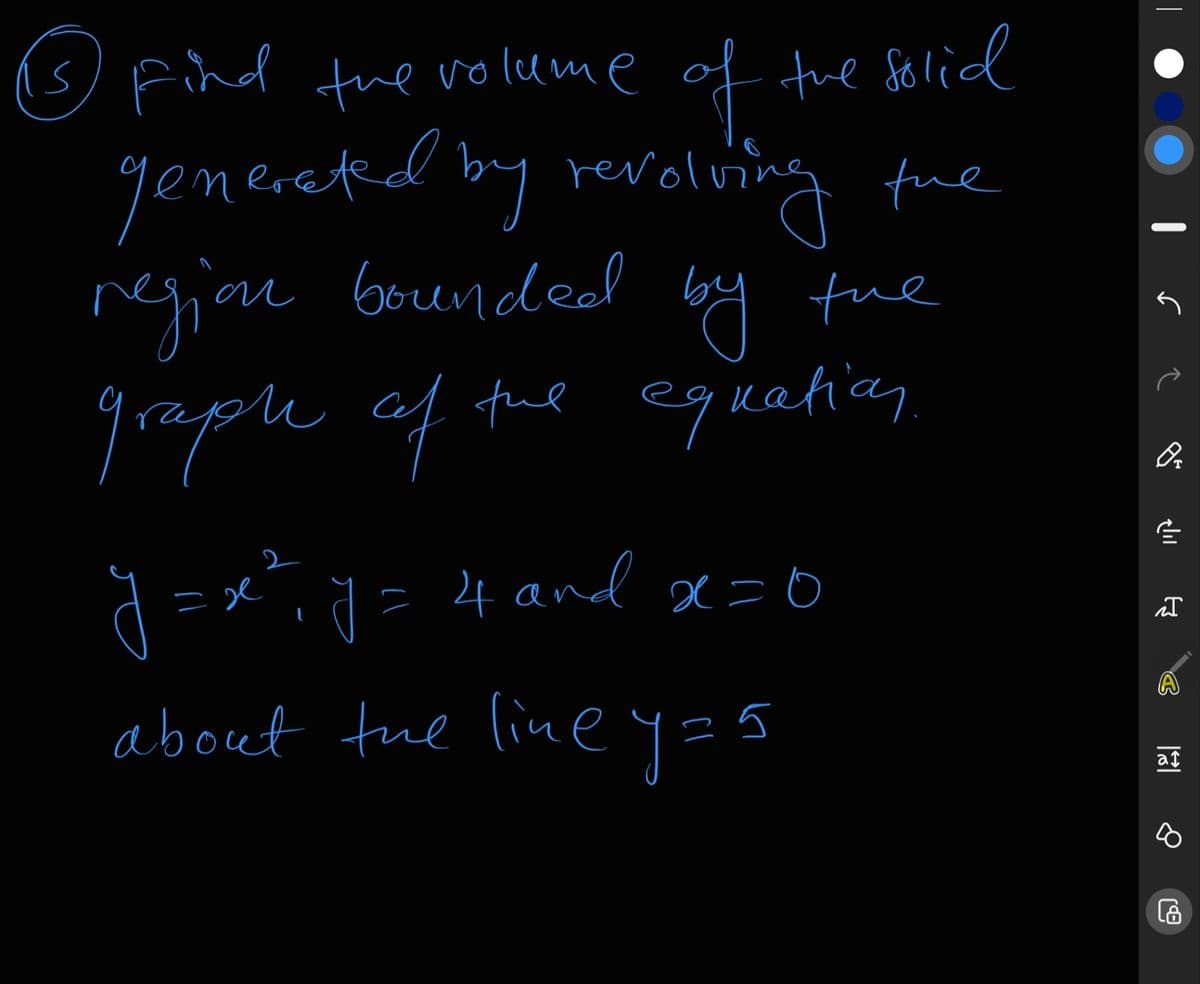 15 Find the volume of the solid
generated by revolving the
region bounded by the
graph of the equation.
y = x², y = 4 and x = 0
about the line y = 5